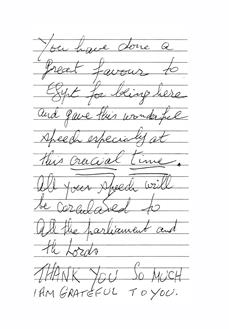 You have done a
great favour to
Egypt for being here
and gave this wonderful
speech especially at
this crucial time.
All your speech will
be corculared to
All the parliament and
the Lords
THANK YOU SO MUCH
I AM GRATEFUL TO YOU.